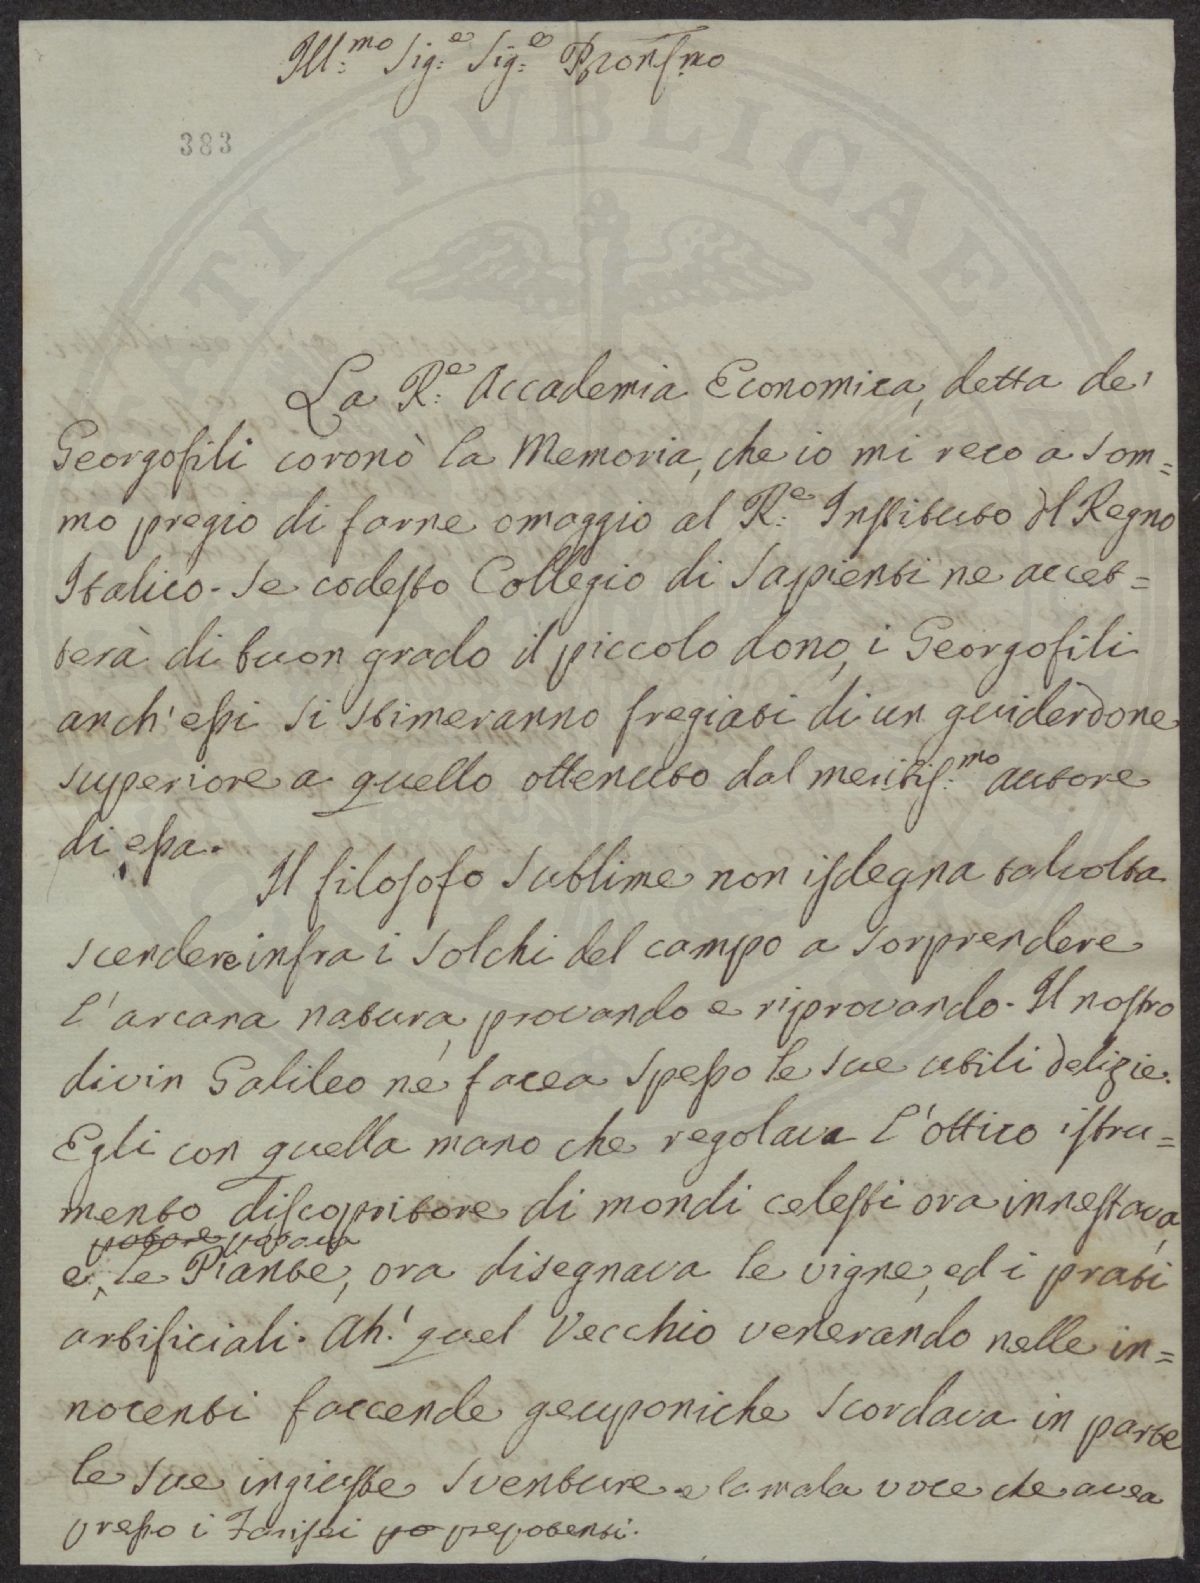 Ill:mo Sig:e Sig:e Pron Smo
383
La R:e Accademia Economica, detta de'
Georgofili coronò la Memoria, che io mi reco a som=
mo pregio di farne omaggio al R:e Instituto del Regno
Italico. Se codesto Collegio di Sapienti ne accet=
terà di buon grado il piccolo dono, i Georgofili
anch'essi si stimeranno fregiati di un guiderdone
superiore a quello ottenuto dal meritis:mo autore
di essa.
Il filosofo sublime non isdegna talvolta
scendere infra i solchi del campo a sorprendere
l'arcana natura, provando e riprovando. Il nostro
divin Galileo ne facea spesso le sue utili delizie.
Egli con quella mano che regolava l'ottico istru=
mento discopritore di mondi celesti ora innestava,
potare potava
e le Piante, ora disegnava le vigne, ed i prati
artificiali. Ah! quel Vecchio venerando nelle in=
nocenti faccende geuponiche scordava in parte
le sue ingiuste sventure e la mala voce che avea
presso i Farisei po prepotenti.
PVBLICAE